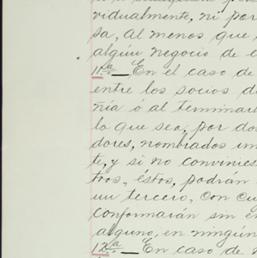 vidualmente, ni por
sa, al menos que
algún negocio de
11ª— En el caso de
entre los socios de
ñía ó al terminar
lo que sea, por do
dores, nombrados un
te, y si no convinie
tros, éstos, podrán
un tercero, con cu
conformarán sin
alguno, en ningún
12ª— En caso de